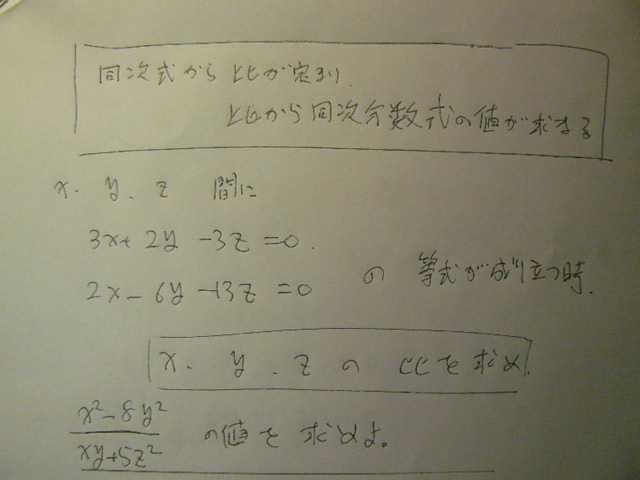 同次式から比が定まり、
比から同次分数式の値が求まる
x、y、z 間に
3x+2y-3z=0.
2x-6y-13z=0 の 等式が成り立つ時、
x、y、z の 比を求め、
x²-8y²/xy+5z² の値を求めよ。